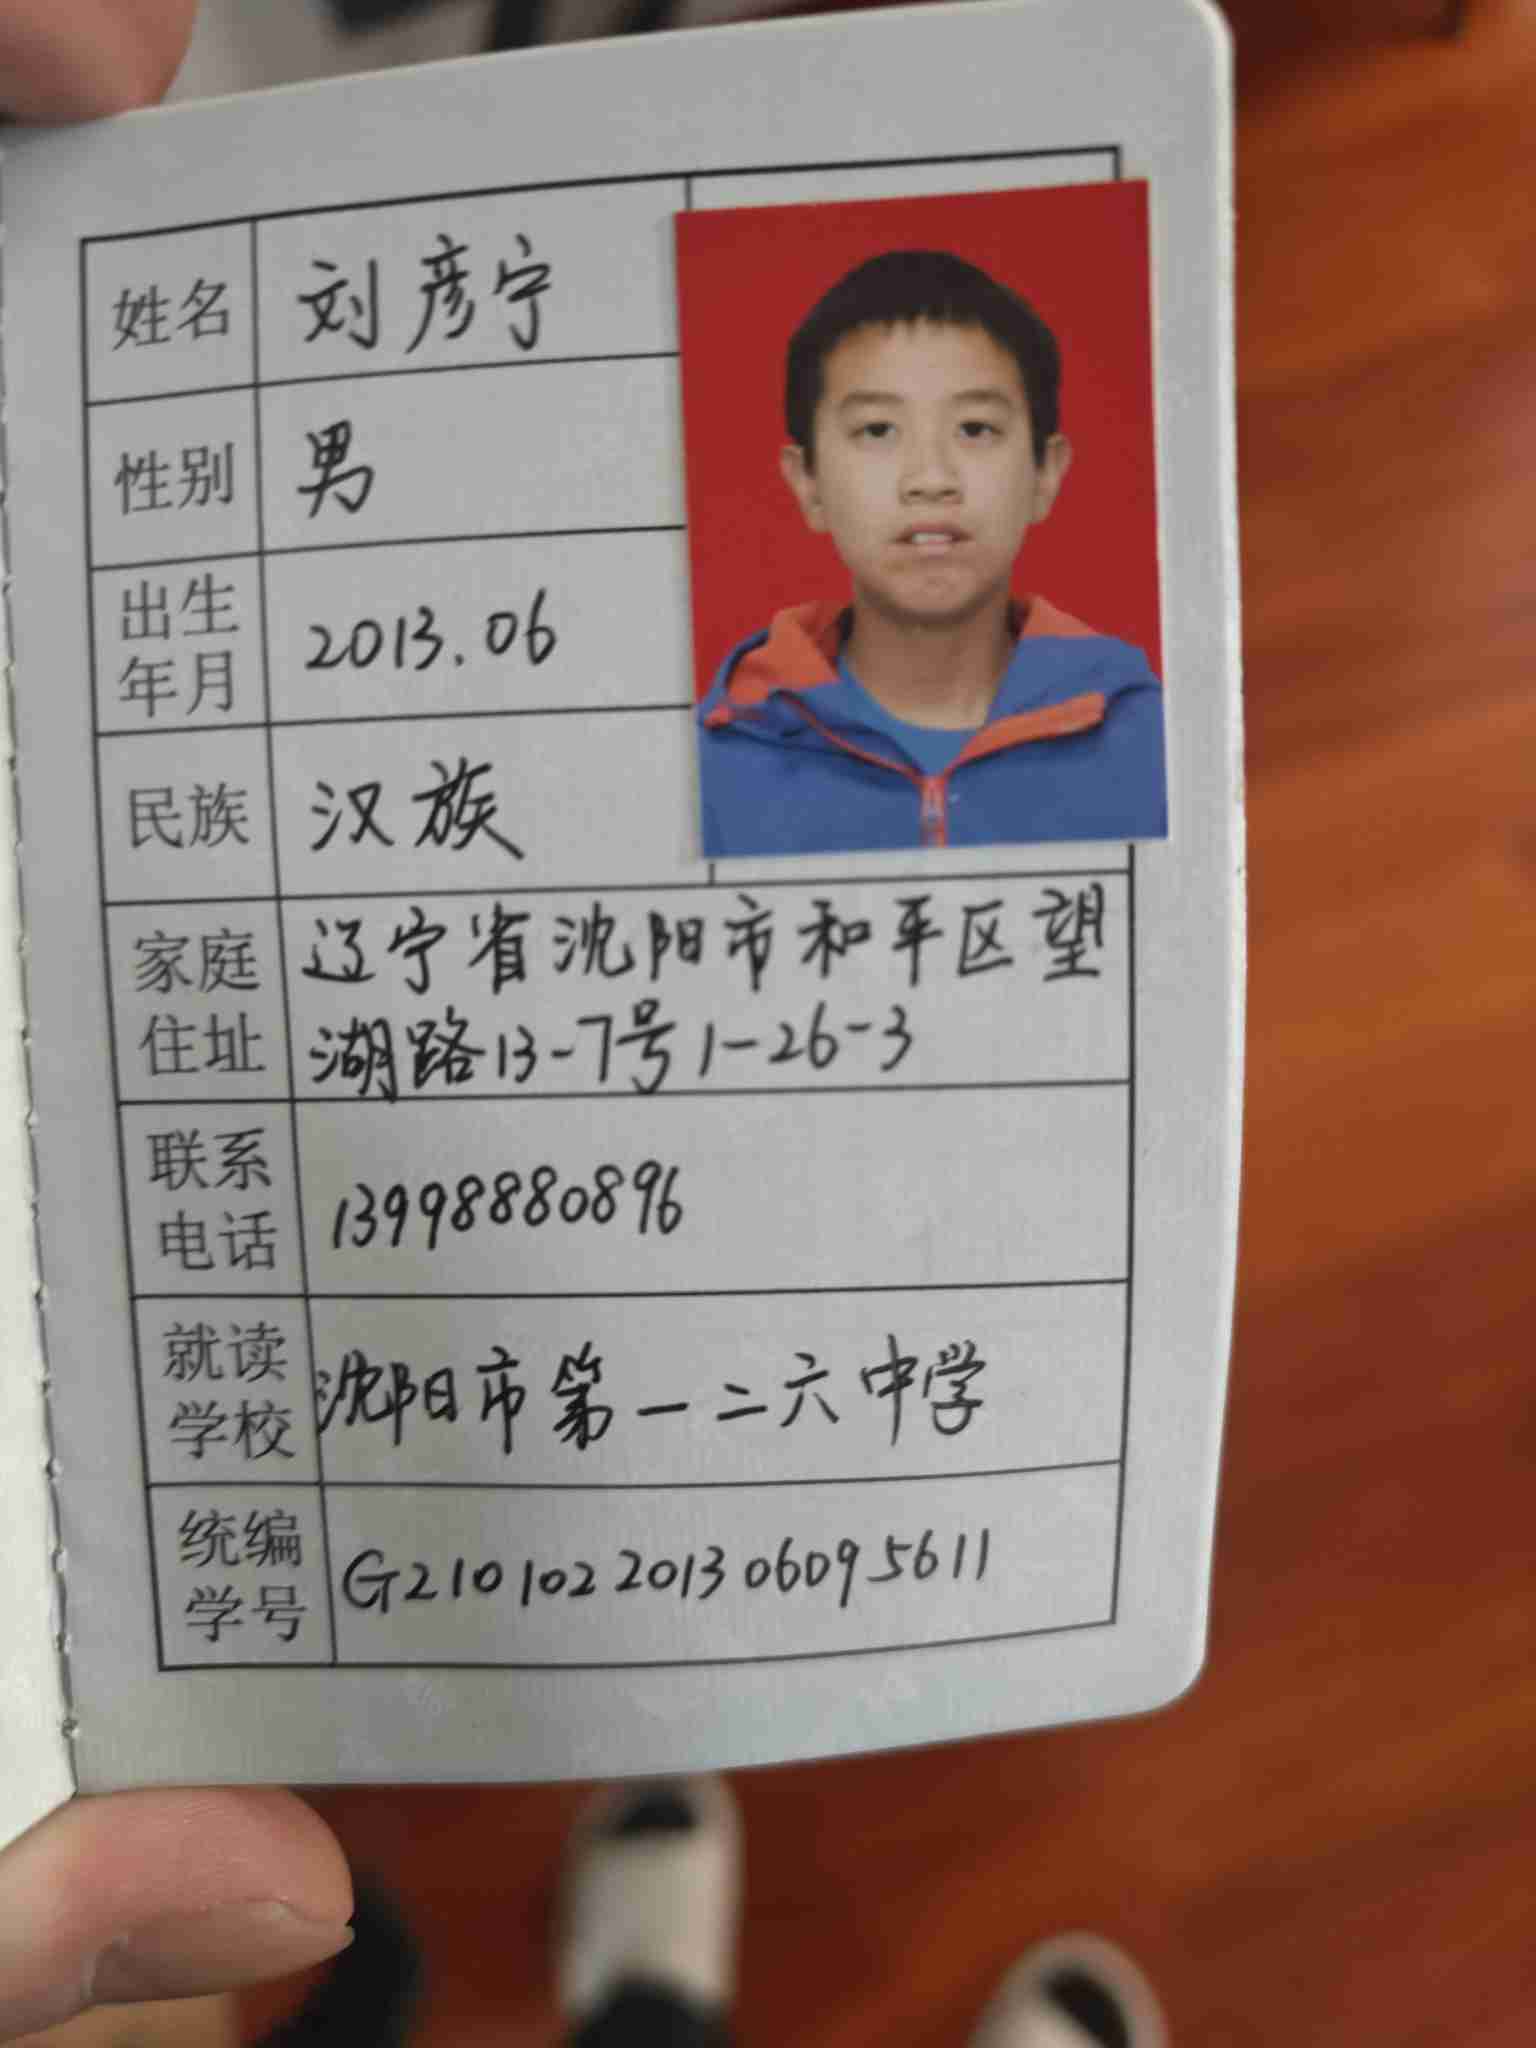 姓名 刘彦宁
性别 男
出生年月 2013.06
民族 汉族
家庭住址 辽宁省沈阳市和平区望
湖路13-7号1-26-3
联系电话 13998880896
就读学校 沈阳市第一二六中学
统编学号 G210102201306095611